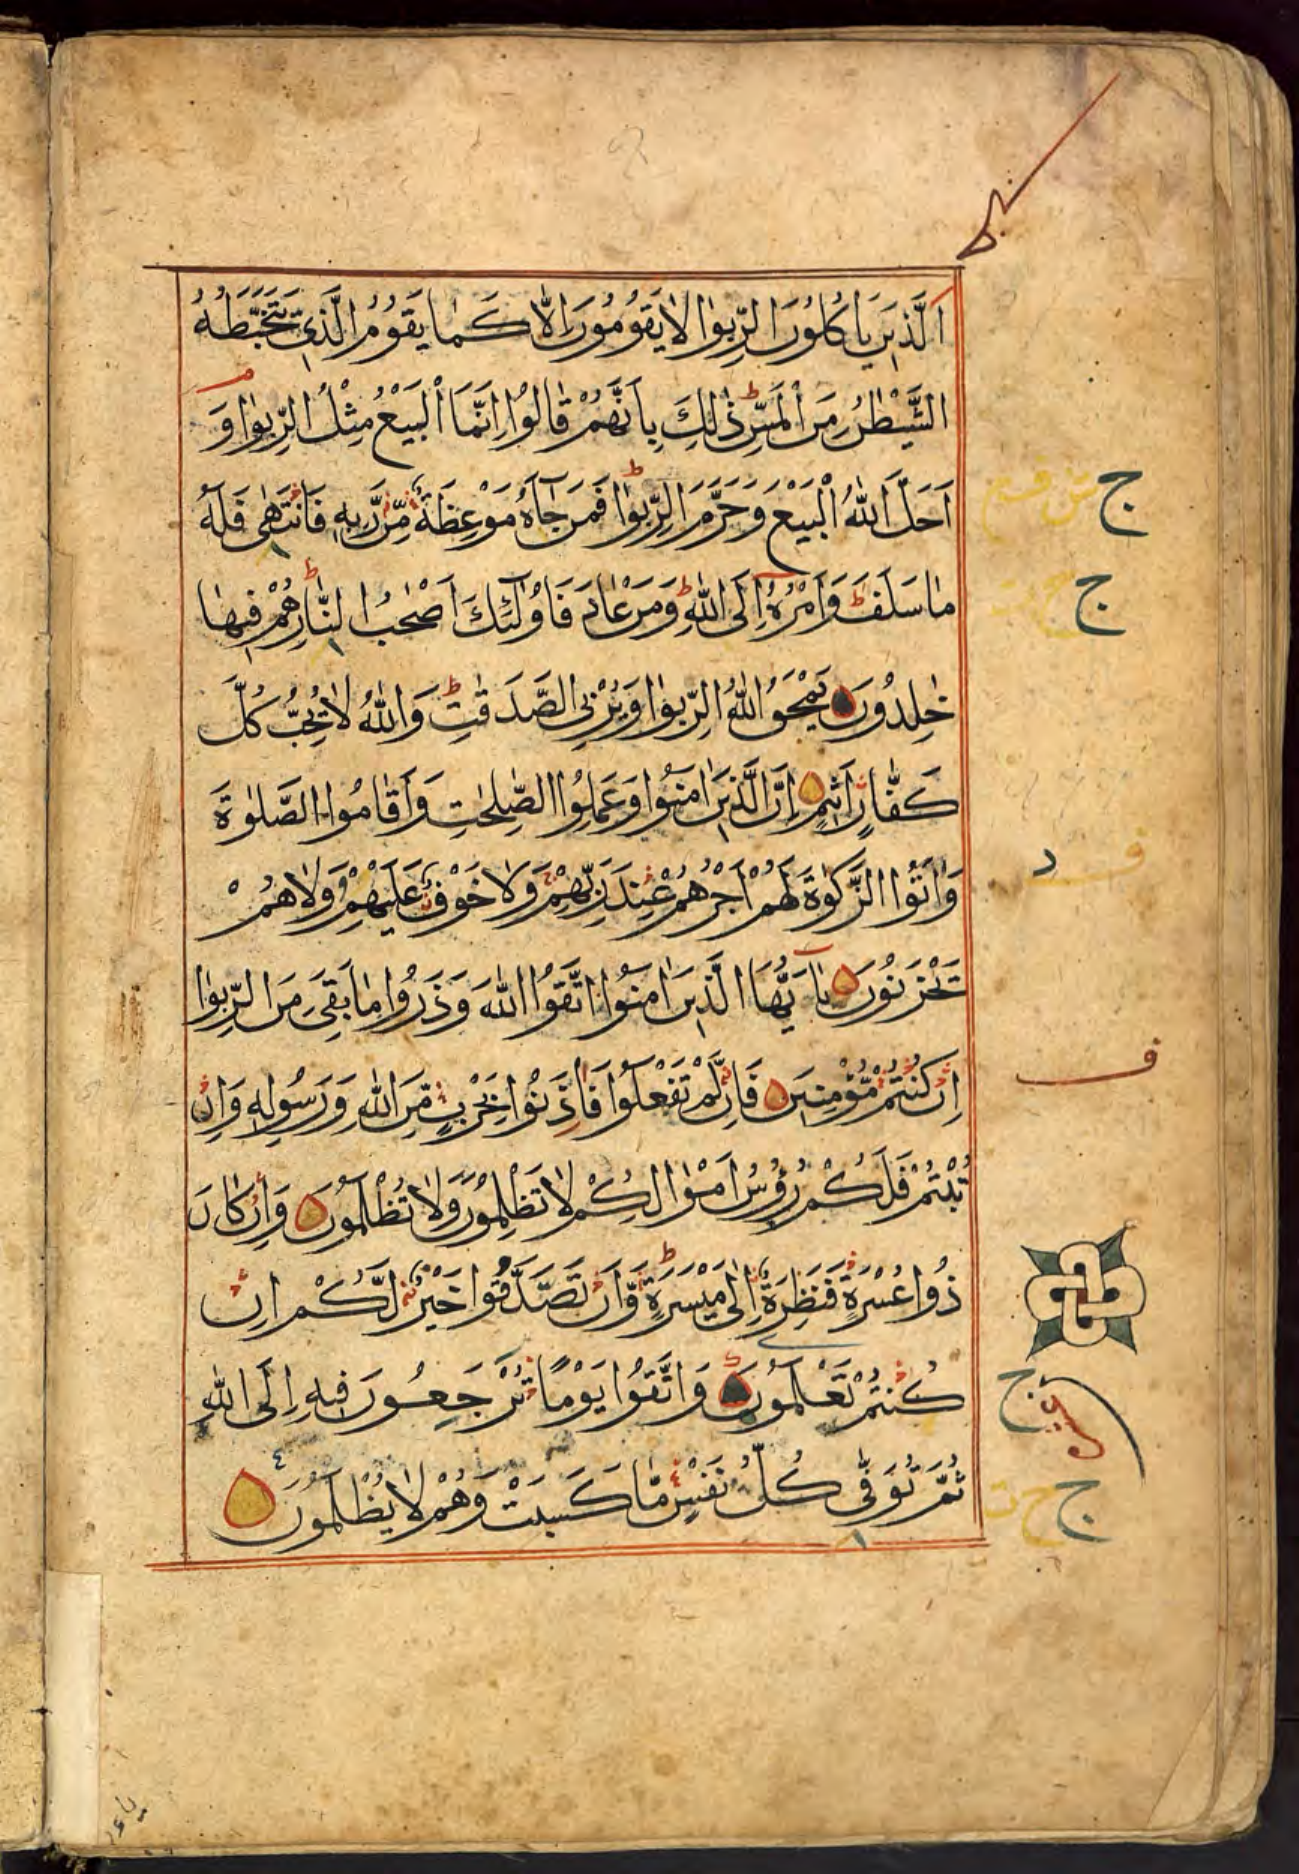 اَلَّذِينَ يَاكُلُونَ الرِّبٰوا لَا يَقُومُونَ اِلَّا كَمَا يَقُومُ الَّذِي يَتَخَبَّطُهُ
الشَّيْطٰنُ مِنَ الْمَسِّ ذٰلِكَ بِاَنَّهُمْ قَالُوا اِنَّمَا الْبَيْعُ مِثْلُ الرِّبٰوا وَ
اَحَلَّ اللّٰهُ الْبَيْعَ وَحَرَّمَ الرِّبٰوا فَمَنْ جَآءَهُ مَوْعِظَةٌ مِّنْ رَّبِهِ فَانْتَهٰى فَلَهُ
مَا سَلَفَ وَاَمْرُهُ اِلَى اللّٰهِ وَمَنْ عَادَ فَاُولٰٓئِكَ اَصْحٰبُ النَّارِ هُمْ فِيهَا
خٰلِدُونَ يَمْحَقُ اللّٰهُ الرِّبٰوا وَيُرْبِي الصَّدَقٰتِ وَاللّٰهُ لَا يُحِبُّ كُلَّ
كَفَّارٍ اَثِيمٍ اِنَّ الَّذِينَ اٰمَنُوا وَعَمِلُوا الصّٰلِحٰتِ وَاَقَامُوا الصَّلٰوةَ
وَاٰتَوُا الزَّكٰوةَ لَهُمْ اَجْرُهُمْ عِنْدَ رَبِّهِمْ وَلَا خَوْفٌ عَلَيْهِمْ وَلَا هُمْ
يَحْزَنُونَ يٰٓاَيُّهَا الَّذِينَ اٰمَنُوا اتَّقُوا اللّٰهَ وَذَرُوا مَا بَقِيَ مِنَ الرِّبٰوا
اِنْ كُنْتُمْ مُّؤْمِنِينَ فَاِنْ لَّمْ تَفْعَلُوا فَاْذَنُوا بِحَرْبٍ مِّنَ اللّٰهِ وَرَسُولِهِ وَاِنْ
تُبْتُمْ فَلَكُمْ رُؤُسُ اَمْوَالِكُمْ لَا تَظْلِمُونَ وَلَا تُظْلَمُونَ وَاِنْ كَانَ
ذُوا عُسْرَةٍ فَنَظِرَةٌ اِلٰى مَيْسَرَةٍ وَّاَنْ تَصَدَّقُوا خَيْرٌ لَّكُمْ اِنْ
كُنْتُمْ تَعْلَمُونَ وَاتَّقُوا يَوْمًا تُرْجَعُونَ فِيهِ اِلَى اللّٰهِ
ثُمَّ تُوَفّٰى كُلُّ نَفْسٍ مَّا كَسَبَتْ وَهُمْ لَا يُظْلَمُونَ
ج
ج
ف
ج
ج